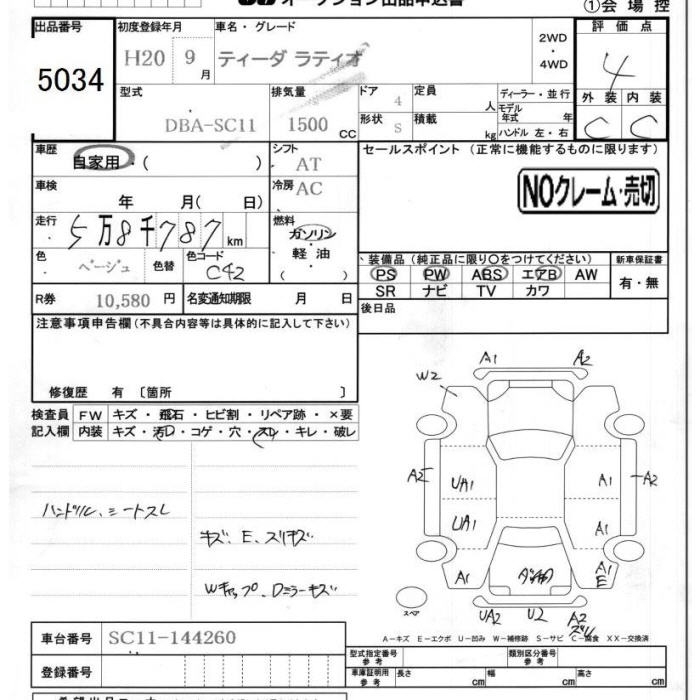 オークション出品申込書
①会場控
出品番号
5034
初度登録年月
H20 9月
車名・グレード
ティーダ ラティオ
2WD
・
4WD
評価点
4
外装 内装
C C
型式
DBA-SC11
排気量
1500 CC
ドア
4
形状
S
定員
人
積載
kg
ディーラー・並行
モデル年式 年
ハンドル 左・右
車歴
自家用・( )
シフト
AT
車検
年 月( 日)
冷房
AC
セールスポイント (正常に機能するものに限ります)
NOクレーム・売切
走行
5万8千787km
燃料
ガソリン
・
軽油
( )
色
ベージュ
色替
色コード
C42
装備品(純正品に限り○をつけてください)
PS PW ABS エアB AW
SR ナビ TV カワ
新車保証書
有・無
R券
10,580 円
名変通知期限 月 日
後日品
注意事項申告欄(不具合内容等は具体的に記入して下さい)
修復歴 有 〔箇所 〕
検査員記入欄
FW キズ・飛石・ヒビ割・リペア跡・×要
内装 キズ・汚D・コゲ・穴・スレ・キレ・破レ
ハンドル、シートスレ
キズ、E、スリキズ
Wキャップ、Dミラーキズ
A1
A2
W2
A2
UA1
UA1
A1
A1
A2
A1
A1
E
UA2
U2
A2
スペア
A−キズ E−エクボ U−凹み W−補修跡 S−サビ C−腐食 XX−交換済
車台番号
SC11-144260
登録番号
型式指定番号
参考
類別区分番号
参考
車庫証明用
参考
長さ cm
幅 cm
高さ cm